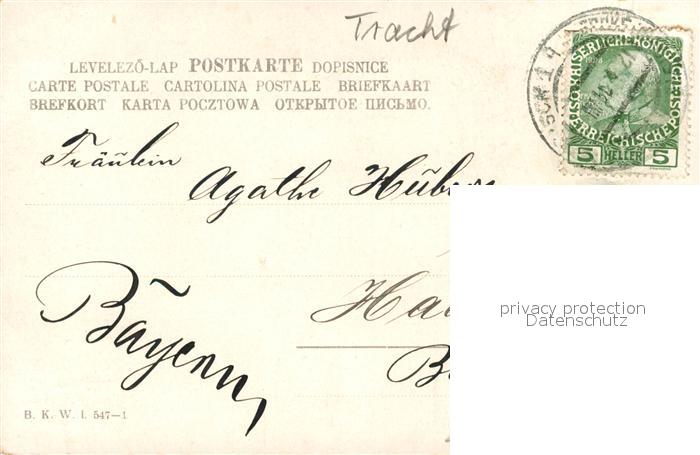 Tracht
LEVELEZŐ-LAP POSTKARTE DOPISNICE
CARTE POSTALE CARTOLINA POSTALE BRIEFKAART
BREFKORT KARTA POCZTOWA ОТКРЫТОЕ ПИСЬМО.
KAISERLICHE KÖNIGLICHE ÖSTERREICHISCHE POST
1908
5 HELLER 5
Fräulein
Agathe
Bayern
privacy protection
Datenschutz
B. K. W. I. 547-1